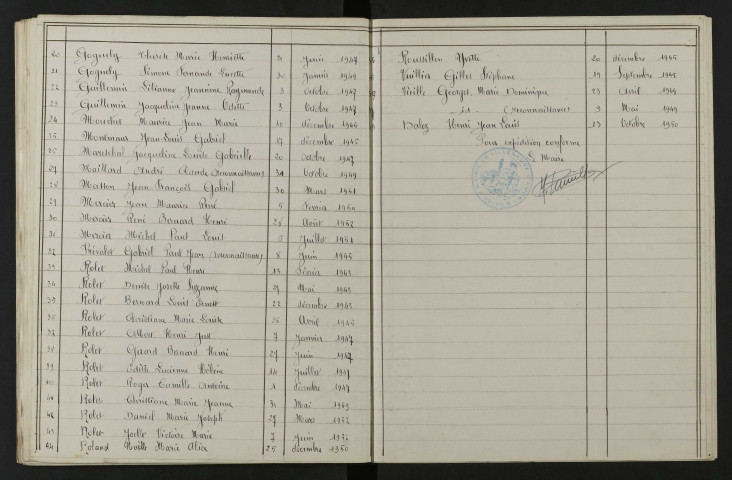 20 Goguely Thérèse Marie Henriette 2 Juin 1947
21 Goguely Simone Fernande Lucette 30 Janvier 1949
22 Guillemin Lilianne Jeannine Raymonde 3 Octobre 1947
23 Guillemin Jacqueline Jeanne Odette 3 Octobre 1947
24 Maurice Jean Marie 10 décembre 1946
25 Jean-Louis Gabriel 17 décembre 1945
26 Maréchal Jacqueline Louise Gabrielle 20 Octobre 1947
27 Maillard André Claude (reconnaissance) 31 Octobre 1949
28 Masson Jean François Gabriel 30 Mars 1951
29 Mercier Jean Maurice René 5 Février 1950
30 Mercier René Bernard Henri 28 Août 1952
31 Mercier Michel Paul Louis 5 Juillet 1951
32 Privalet Gabriel Paul Jean (reconnaissance) 8 Juin 1945
33 Rolet Michel Paul Henri 13 Février 1943
34 Rolet Denise Josette Suzanne 29 Mai 1943
35 Rolet Bernard Louis Ernest 22 décembre 1943
36 Rolet Christiane Marie Louise 26 Avril 1945
37 Rolet Albert Henri Just 7 Janvier 1947
38 Rolet Gérard Bernard Henri 27 Juin 1947
39 Rolet Edith Lucienne Hélène 14 Juillet 1947
40 Rolet Roger Camille Antoine 1 décembre 1947
41 Rolet Christiane Marie Jeanne 31 Mai 1949
42 Rolet Daniel Marie Joseph 27 Mars 1952
43 Rolet Joëlle Victoire Marie 7 Juin
44 Roland Noëlle Marie Alix 25 décembre 1950
Roussillon Yvette 20 décembre 1946
Vuillin Gilles Stéphane 19 Septembre 1945
Vieille Georges Marie Dominique 23 Avril 1949
id (reconnaissance) 9 Mai 1949
Balez Henri Jean Louis 13 Octobre 1950
Pour expédition conforme
Le Maire